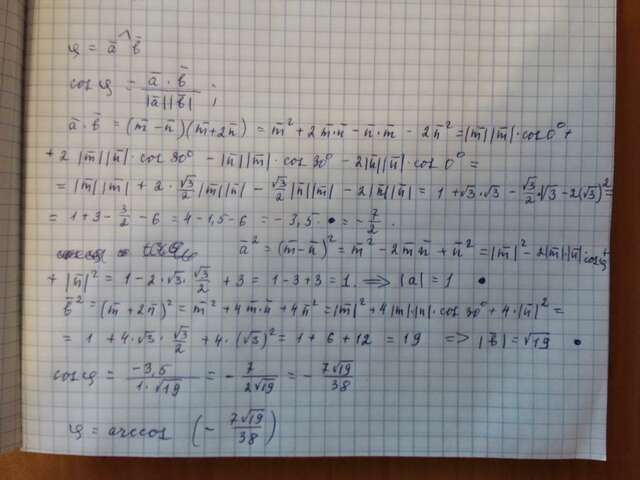 φ = a̅ ^ b̅
cos φ = (a̅ · b̅) / (|a̅||b̅|) ;
a̅ · b̅ = (m̅ − n̅)(m̅ + 2n̅) = m̅² + 2m̅·n̅ − n̅·m̅ − 2n̅² = |m̅||m̅|·cos 0° +
+ 2 |m̅||n̅| · cos 30° − |n̅||m̅| · cos 30° − 2|n̅||n̅| · cos 0° =
= |m̅||m̅| + 2 · √3/2 |m̅||n̅| − √3/2 |n̅||m̅| − 2|n̅||n̅| = 1 + √3·√3 − √3/2·√3 − 2(√3)² =
= 1 + 3 − 3/2 − 6 = 4 − 1,5 − 6 = − 3,5 · = − 7/2 .
a̅² = (m̅ − n̅)² = m̅² − 2m̅n̅ + n̅² = |m̅|² − 2|m̅|·|n̅| cos φ +
+ |n̅|² = 1 − 2 · √3 · √3/2 + 3 = 1 − 3 + 3 = 1. ⟹ |a| = 1 •
b̅² = (m̅ + 2n̅)² = m̅² + 4m̅·n̅ + 4n̅² = |m̅|² + 4|m|·|n|·cos 30° + 4·|n̅|² =
= 1 + 4·√3 · √3/2 + 4·(√3)² = 1 + 6 + 12 = 19 ⟹ |b̅| = √19 •
cos φ = −3,5 / (1·√19) = − 7/(2√19) = − 7√19/38
φ = arccos (− 7√19/38)